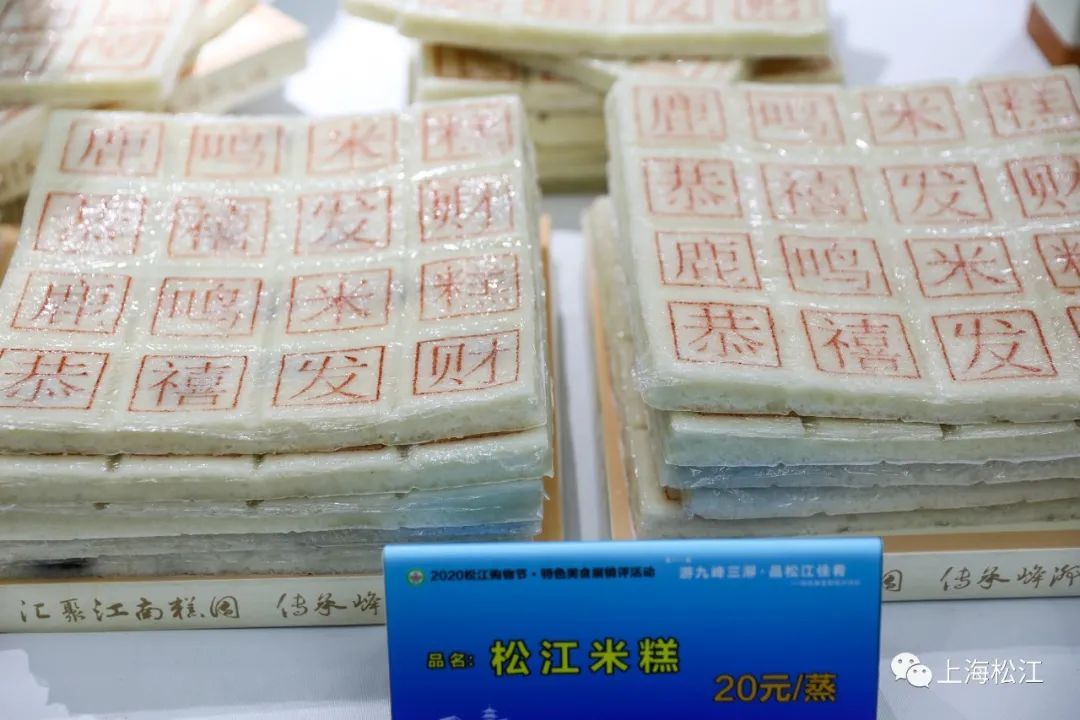 鹿鸣米糕
恭禧发财
鹿鸣米糕
恭禧发财
鹿鸣米糕
恭禧发财
鹿鸣米糕
恭禧发
汇聚江南糕团 传承峰
传承峰泖
2020松江购物节·特色美食展销评活动
游九峰三泖·品松江佳肴
品名：松江米糕
20元/蒸
上海松江